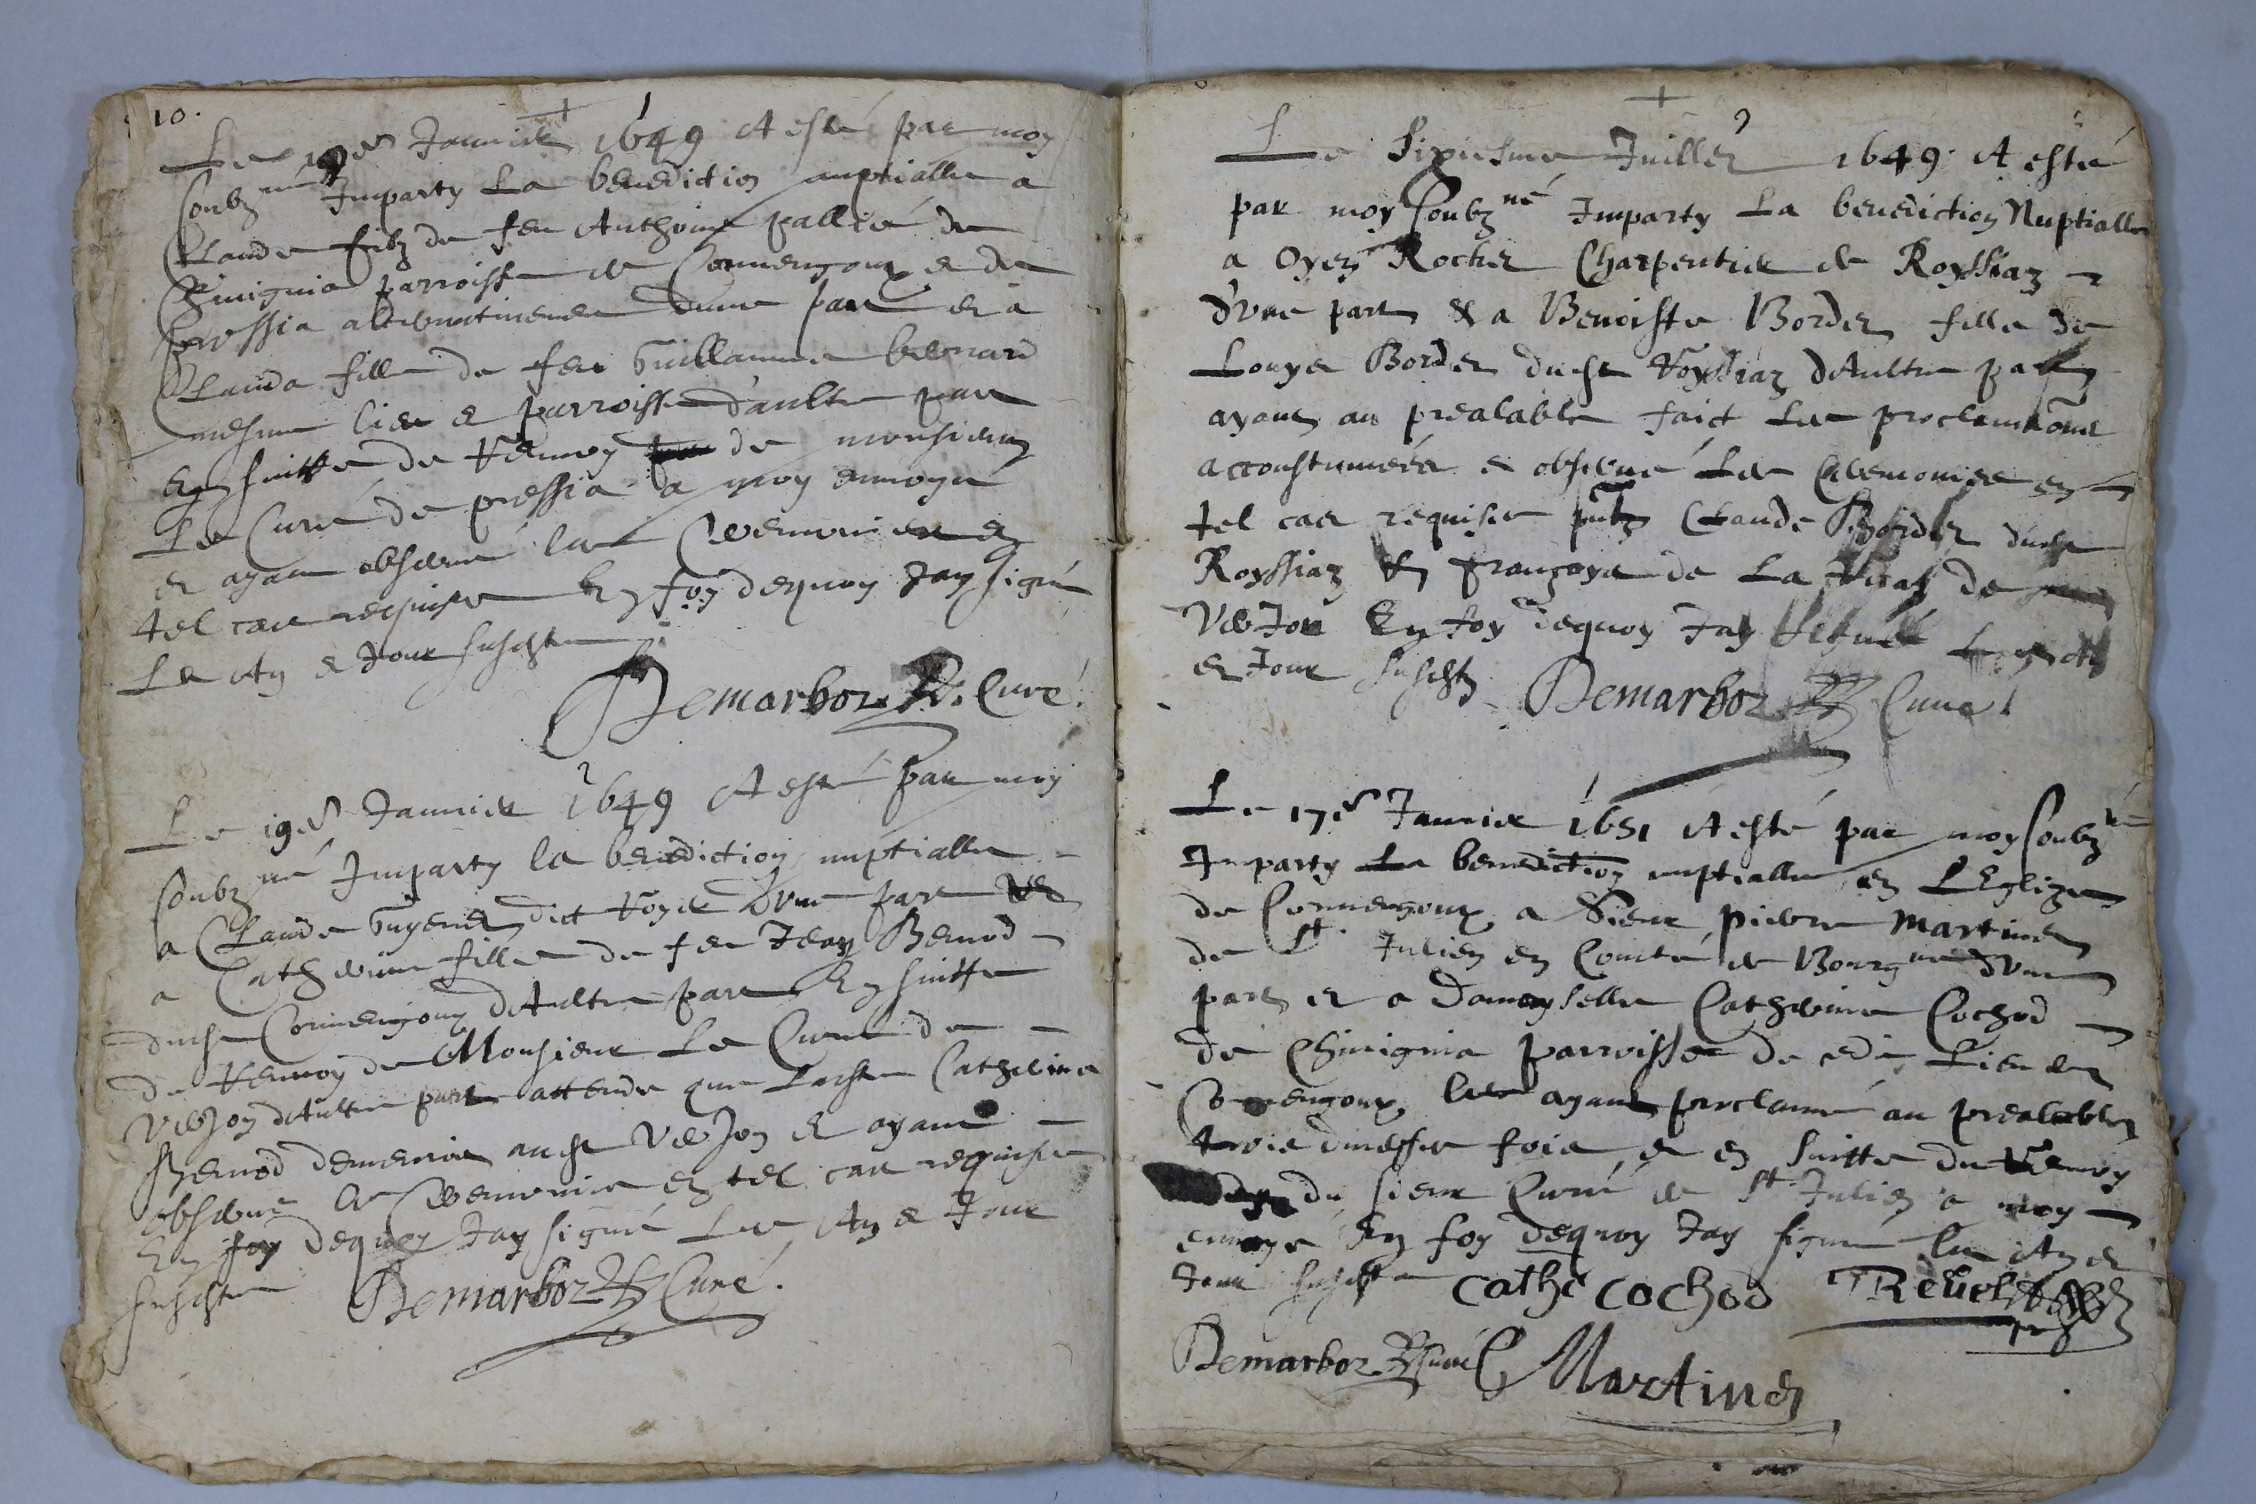 10.
Le 19e Januier 1649 A esté par moy
soubzné Imparty La benediction nuptialle a
Claude filz de feu Anthoine pallié de
Chinignia parroisse de Connengoux & de
pressia alternatiuement d'une part et a
Clauda fille de feu Guillaume bernard
mesme lieu & parroisse d'aultre part
En suitte de Renuoy de monsieur
Le Curé de pressia a moy enuoyé
et ayant obserué les Ceremonies en
tel cas requises En foy dequoy Jay signé
Les An & Jour susdits
Demarboz Curé.
Le 19e Januier 1649 A esté par moy
soubzné Imparty la benediction nuptialle
a Claude Guyenet dict Royer d'vne part et
a Catherine fille de feu Jean Bernod
dudit Connengoux d'Aultre part En suitte
de Renuoy de Monsieur Le Curé de
Verjon d'Aultre part attendu que Ladite Catherine
Bernod demeuroit audit Verjon et ayant
obserué les Ceremonies en tel cas requises
En foy dequoy Jay signé Les An & Jour
susdits Demarboz Curé.
Le Sixiesme Juillet 1649 A esté
par moy soubzné Imparty La benediction Nuptialle
a Oyen Rochet Charpentier de Royssiaz
d'vne part & a Benoiste Bordet fille de
Louys Bordet dudit Royssiaz d'Aultre part
ayant au prealable faict Les proclamaons
accoustumées & obserué Les Ceremonies en
tel cas requises pntz Claude Bordet dudit
Royssiaz Et françoys de La de
Verjon En foy dequoy Jay signé Les An
et Jour susdits Demarboz Curé
Le 17e Januier 1651 A esté par moy soubzné
Imparty La benediction nuptialle en L'Eglize
de Connengoux a Sieur pierre Martinet
de St Julien en Comté de Bourgne d'vne
part et a Damoyselle Catherine Cochod
de Chinignia parroisse de
Connengoux les ayant proclamé au prealable
trois diuerses fois & en suitte du Renuoy
du sieur Curé de St Julien a moy
enuoyé En foy dequoy Jay signé les An et
Jour susdits Cathe Cochod Reuel
Demarboz Curé Martinet